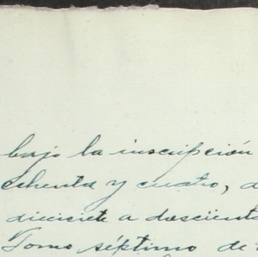 bajo la inscripción
ochenta y cuatro, a
diecisiete a doscient
Tomo séptimo de